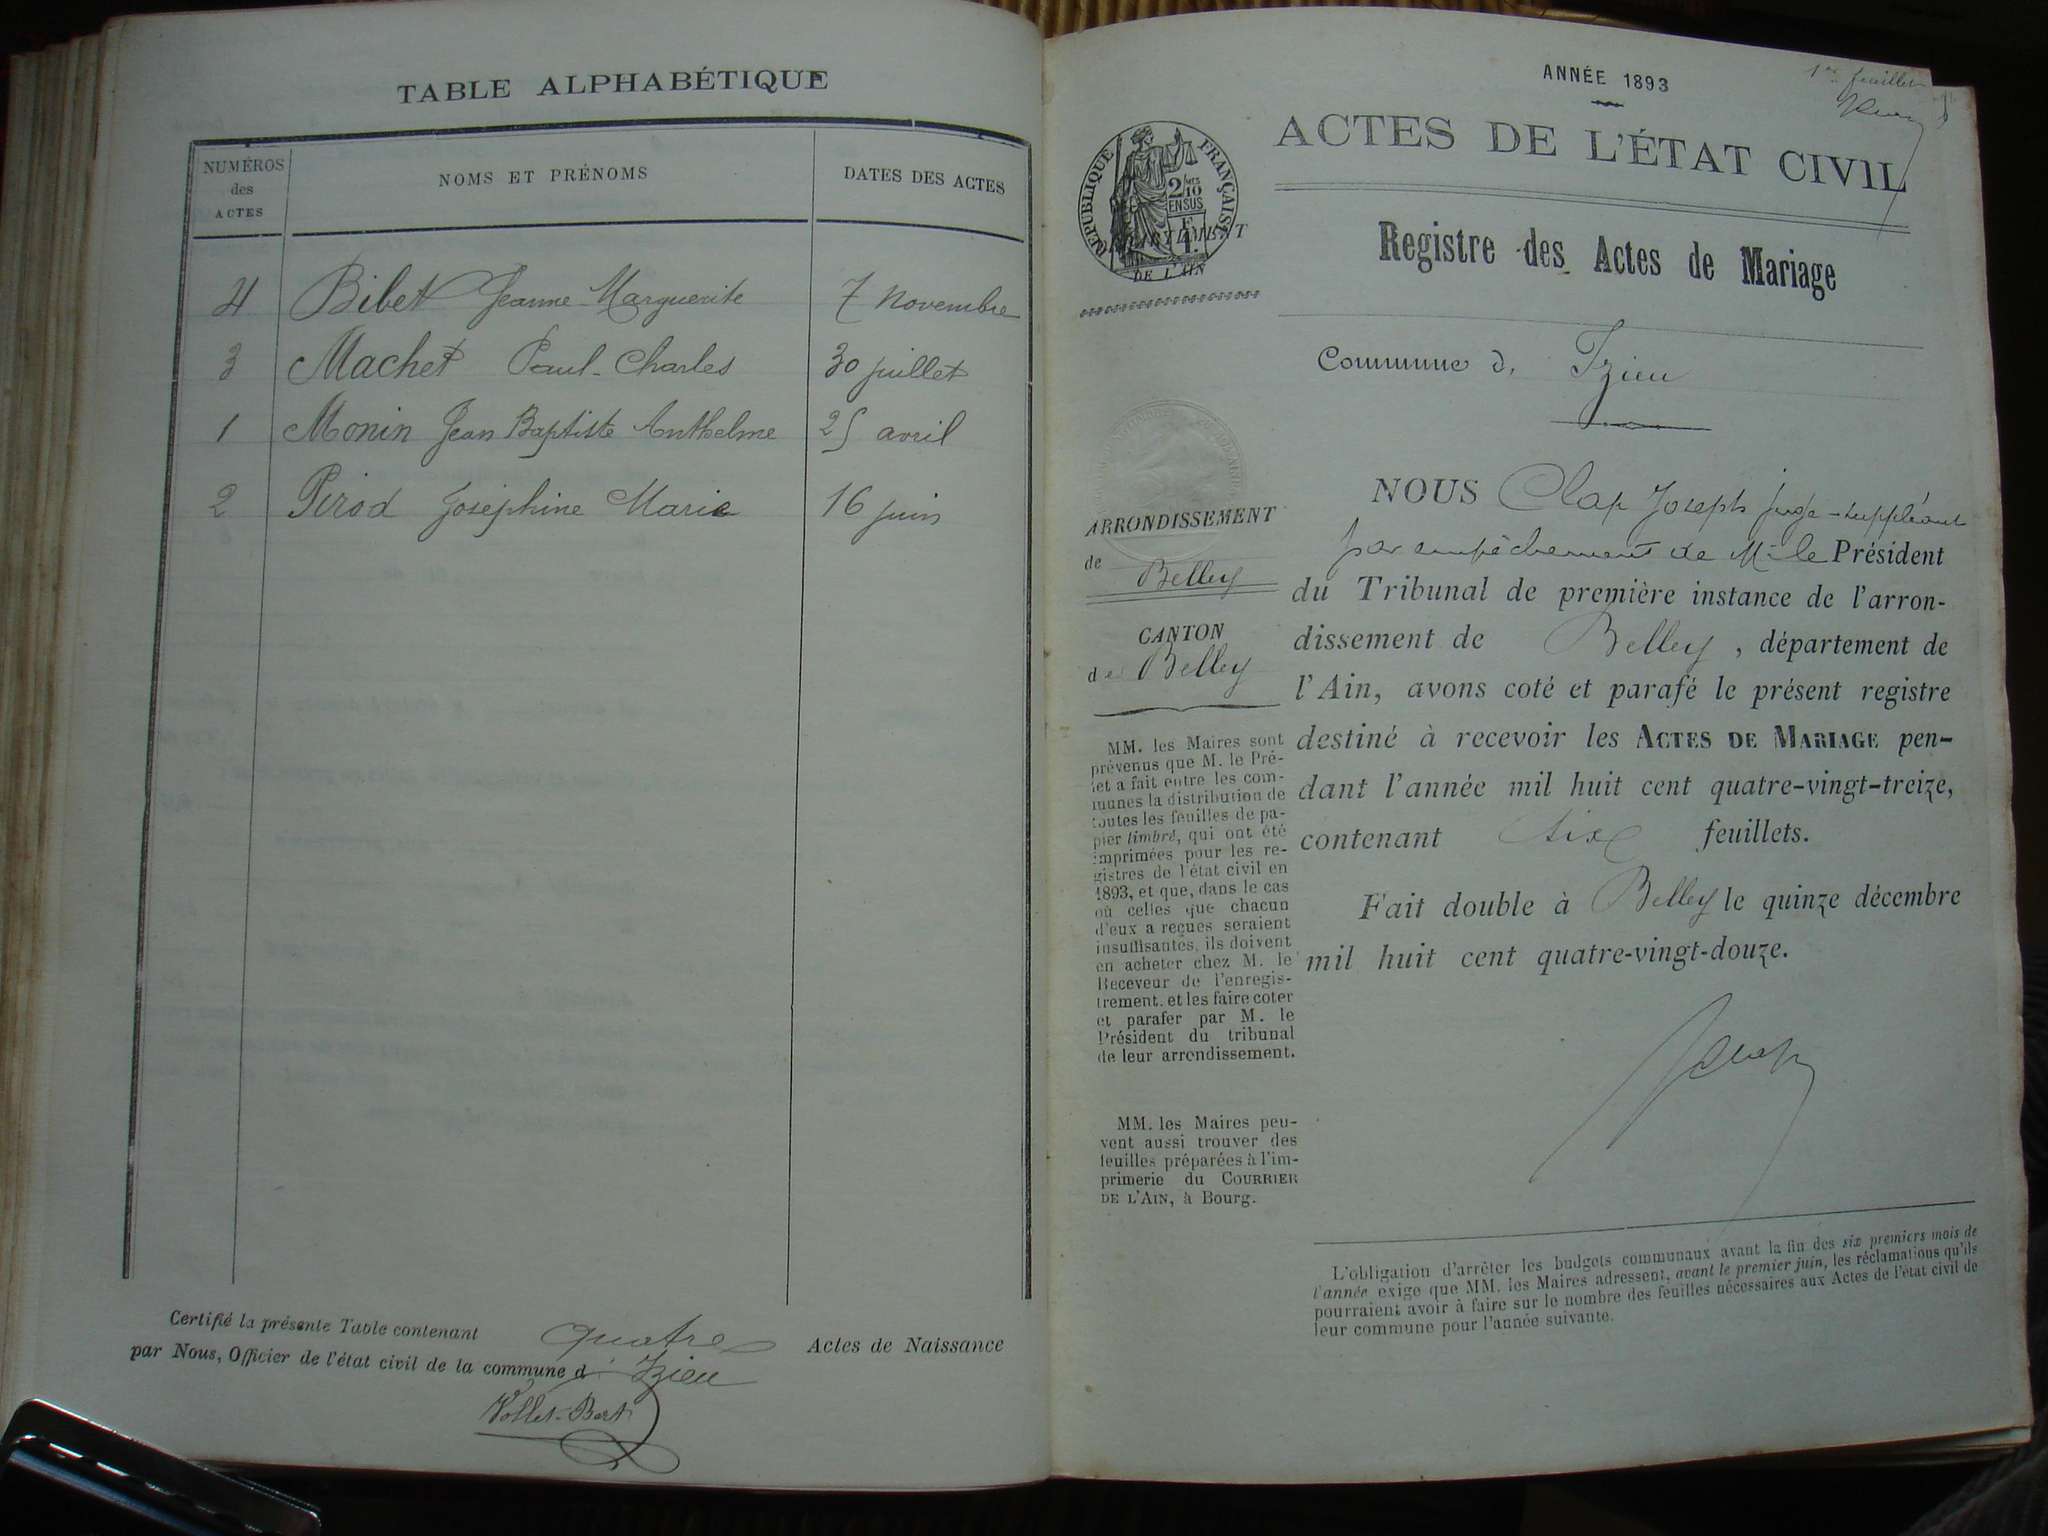 TABLE ALPHABÉTIQUE
NUMÉROS
des
ACTES
NOMS ET PRÉNOMS
DATES DES ACTES
4 Bibet Jeanne Marguerite 7 novembre
3 Machet Paul-Charles 30 juillet
1 Monin Jean Baptiste Anthelme 25 avril
2 Pirod Joséphine Marie 16 juin
Certifié la présente Table contenant quatre Actes de Naissance
par Nous, Officier de l'état civil de la commune d' Izieu
Vollet-Bert
ANNÉE 1893
1er feuillet
ACTES DE L'ÉTAT CIVIL
RÉPUBLIQUE FRANÇAISE
2/10
EN SUS
DÉPARTEMENT
DE L'AIN
Registre des Actes de Mariage
Commune d' Izieu
ARRONDISSEMENT
de
Belley
CANTON
de Belley
MM. les Maires sont
prévenus que M. le Pré-
fet a fait entre les com-
munes la distribution de
toutes les feuilles de pa-
pier timbré, qui ont été
imprimées pour les re-
gistres de l'état civil en
1893, et que, dans le cas
où celles que chacun
d'eux a reçues seraient
insuffisantes, ils doivent
en acheter chez M. le
Receveur de l'enregis-
trement, et les faire coter
et parafer par M. le
Président du tribunal
de leur arrondissement.
MM. les Maires peu-
vent aussi trouver des
feuilles préparées à l'im-
primerie du COURRIER
DE L'AIN, à Bourg.
NOUS Clap Joseph juge-suppléant
par empêchement de M. le Président
du Tribunal de première instance de l'arron-
dissement de Belley, département de
l'Ain, avons coté et parafé le présent registre
destiné à recevoir les ACTES DE MARIAGE pen-
dant l'année mil huit cent quatre-vingt-treize,
contenant six feuillets.
Fait double à Belley le quinze décembre
mil huit cent quatre-vingt-douze.
L'obligation d'arrêter les budgets communaux avant la fin des six premiers mois de
l'année exige que MM. les Maires adressent, avant le premier juin, les réclamations qu'ils
pourraient avoir à faire sur le nombre des feuilles nécessaires aux Actes de l'état civil de
leur commune pour l'année suivante.